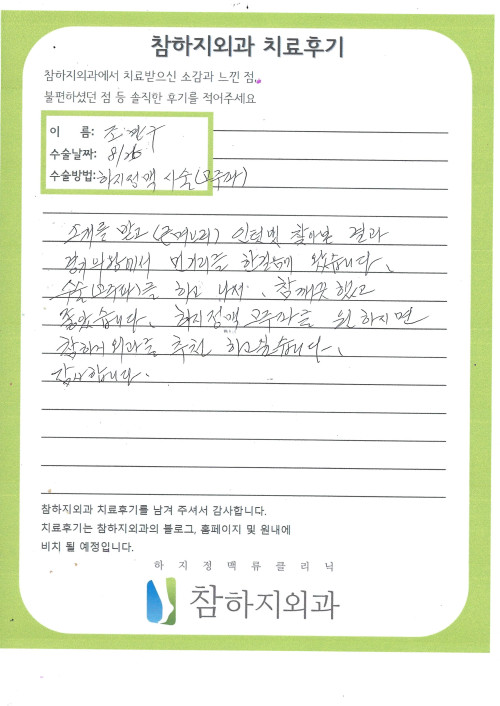 참하지외과 치료후기
참하지외과에서 치료받으신 소감과 느낀 점,
불편하셨던 점 등 솔직한 후기를 적어주세요
이 름:
수술날짜: 8/26
수술방법: 하지정맥 시술(고주파)
소개를 받고 인터넷 찾아본 결과
경기 의왕에서 먼거리를 한걸음에 왔습니다.
수술(고주파)를 하고 나서, 참 깨끗했고
좋았습니다. 하지정맥 고주파를 원하지면
참하지외과를 추천 하고 싶습니다.
감사합니다.
참하지외과 치료후기를 남겨 주셔서 감사합니다.
치료후기는 참하지외과의 블로그, 홈페이지 및 원내에
비치 될 예정입니다.
하지정맥류클리닉
참하지외과